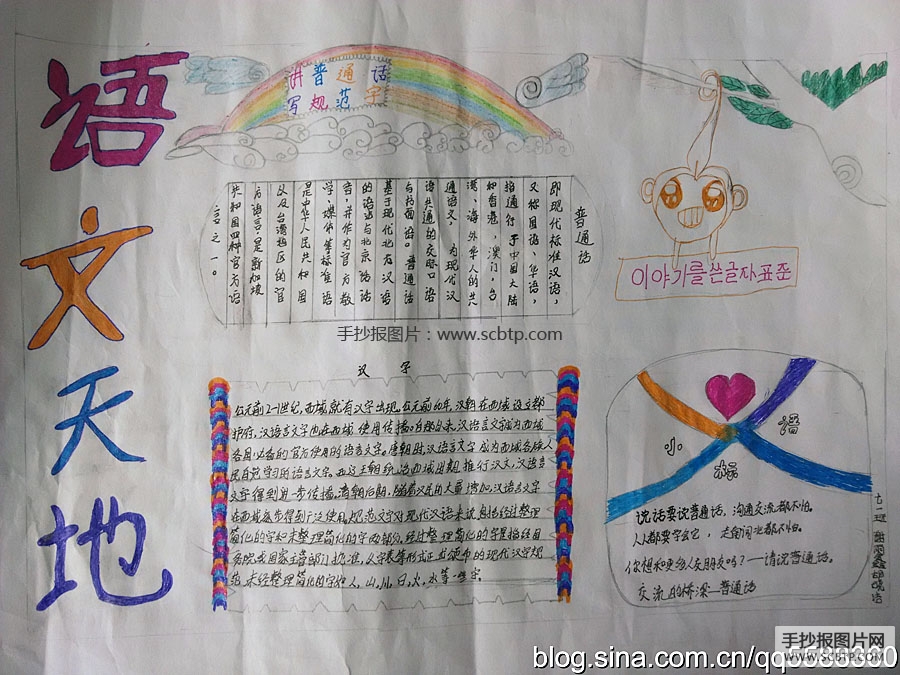 语文天地
讲普通话
写规范字
普通话
即现代标准汉语，
又称国语、华语，
指通行于中国大陆
和香港、澳门、台
湾、海外华人的共
通语文，为现代汉
语共通的交际口语
与书面语。普通话
基于现代北方汉语
的语法与北京话语
音，并作为官方教
学、媒体等标准语
是中华人民共和国
以及台湾地区的官
方语言，是新加坡
共和国四种官方语
言之一。
이야기를쓴글자표준
手抄报图片：www.scbtp.com
汉字
公元前2-1世纪，西域就有汉字出现。公元前60年，汉朝在西域设立都
护府，汉语言文字也在西域使用传播。
各国必备的官方使用的语言文字。唐朝时，汉语言文字成为西域各族人
民自觉学习的语言文字。
文字得到进一步传播。清朝后期，随着汉民的大量增加，汉语言文字
在西域逐步得到广泛使用。规范文字对现代汉语来说，包括经过整理
简化的字和未整理简化的字两部分。经过整理简化的字是指经国
务院或国家主管部门批准，从字表等形式正式颁布的现代汉字规
范。未经整理简化的字像人，山，川，日，火，水等一些字。
小标语
说话要说普通话，沟通交流都不怕。
人人都要学会它，走南闯北都不怕。
你想和更多人交朋友吗？——请说普通话。
交流的桥梁—普通话
七一班
手抄报图片网
www.SCBTP.COM